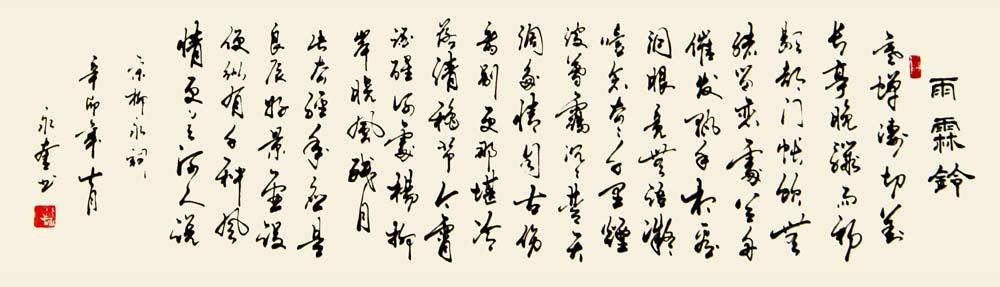 雨霖鈴
寒蟬凄切對
長亭晚驟雨初
歇都門帳飲無
緒留恋處兰舟
催發執手相看
淚眼竟無語凝
噎念去々千里煙
波暮靄沉々楚天
闊多情自古傷
離別更那堪冷
落清秋節今宵
酒醒何處楊柳
岸曉風殘月
此去經年應是
良辰好景虛設
便縱有千種風
情更與何人說
宋柳永詞
辛卯年十月
永奎书